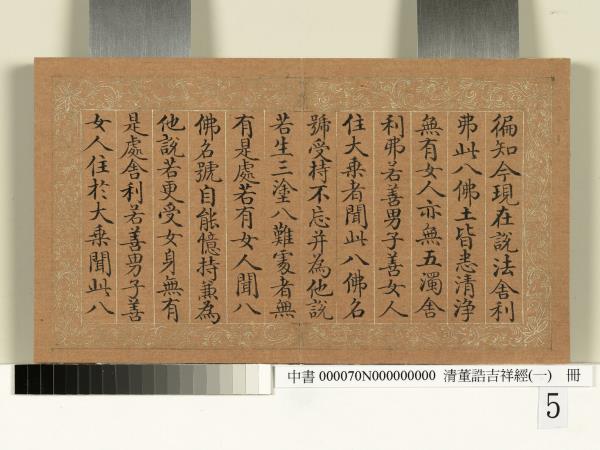 徧知今現在說法舍利
弗此八佛土皆悉清淨
無有女人亦無五濁舍
利弗若善男子善女人
住大乘者聞此八佛名
號受持不忘并為他說
若生三塗八難處者無
有是處若有女人聞八
佛名號自能憶持兼為
他說若更受女身無有
是處舍利若善男子善
女人住於大乘聞此八
中書 000070N000000000 清董誥吉祥經(一) 冊
5